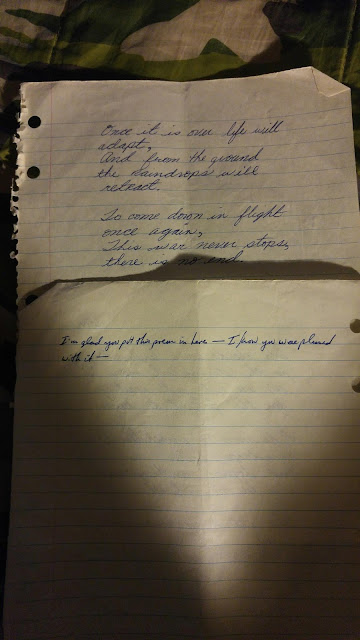 Once it is over life will
adapt,
And from the ground
the raindrops will
retract.
To come down in flight
once again,
This war never stops,
there is no end.
I'm glad you put this poem in here — I know you were pleased
with it —